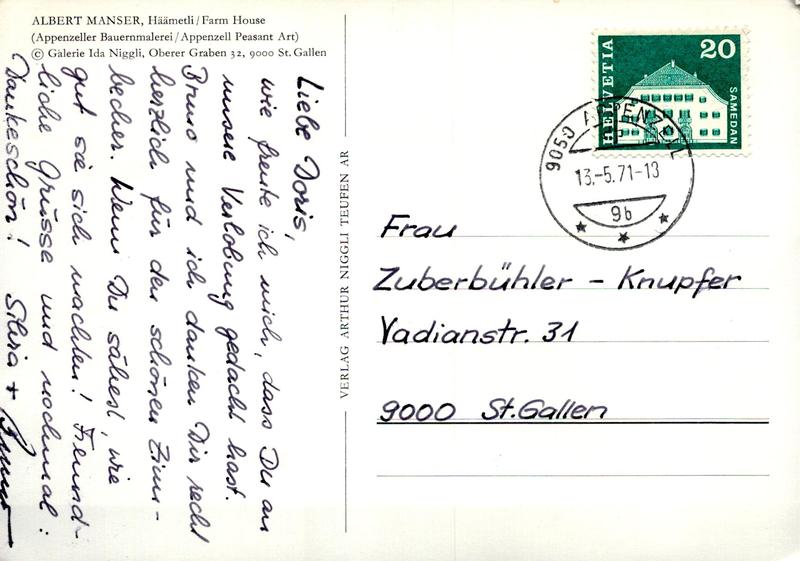 ALBERT MANSER, Häämetli / Farm House
(Appenzeller Bauernmalerei / Appenzell Peasant Art)
© Galerie Ida Niggli, Oberer Graben 32, 9000 St. Gallen
Liebe Doris,
wie freute ich mich, dass Du an
unsere Verlobung gedacht hast.
Bruno und ich danken Dir recht
herzlich für den schönen Zinn-
becher. Wenn Du sähest, wie
gut sie sich machten! Freund-
liche Grüsse und nochmal:
Dankeschön! Silvia + Bruno
VERLAG ARTHUR NIGGLI TEUFEN AR
HELVETIA
20
SAMEDAN
9050 APPENZELL
13.-5.71-13
9b
Frau
Zuberbühler - Knupfer
Vadianstr. 31
9000 St. Gallen